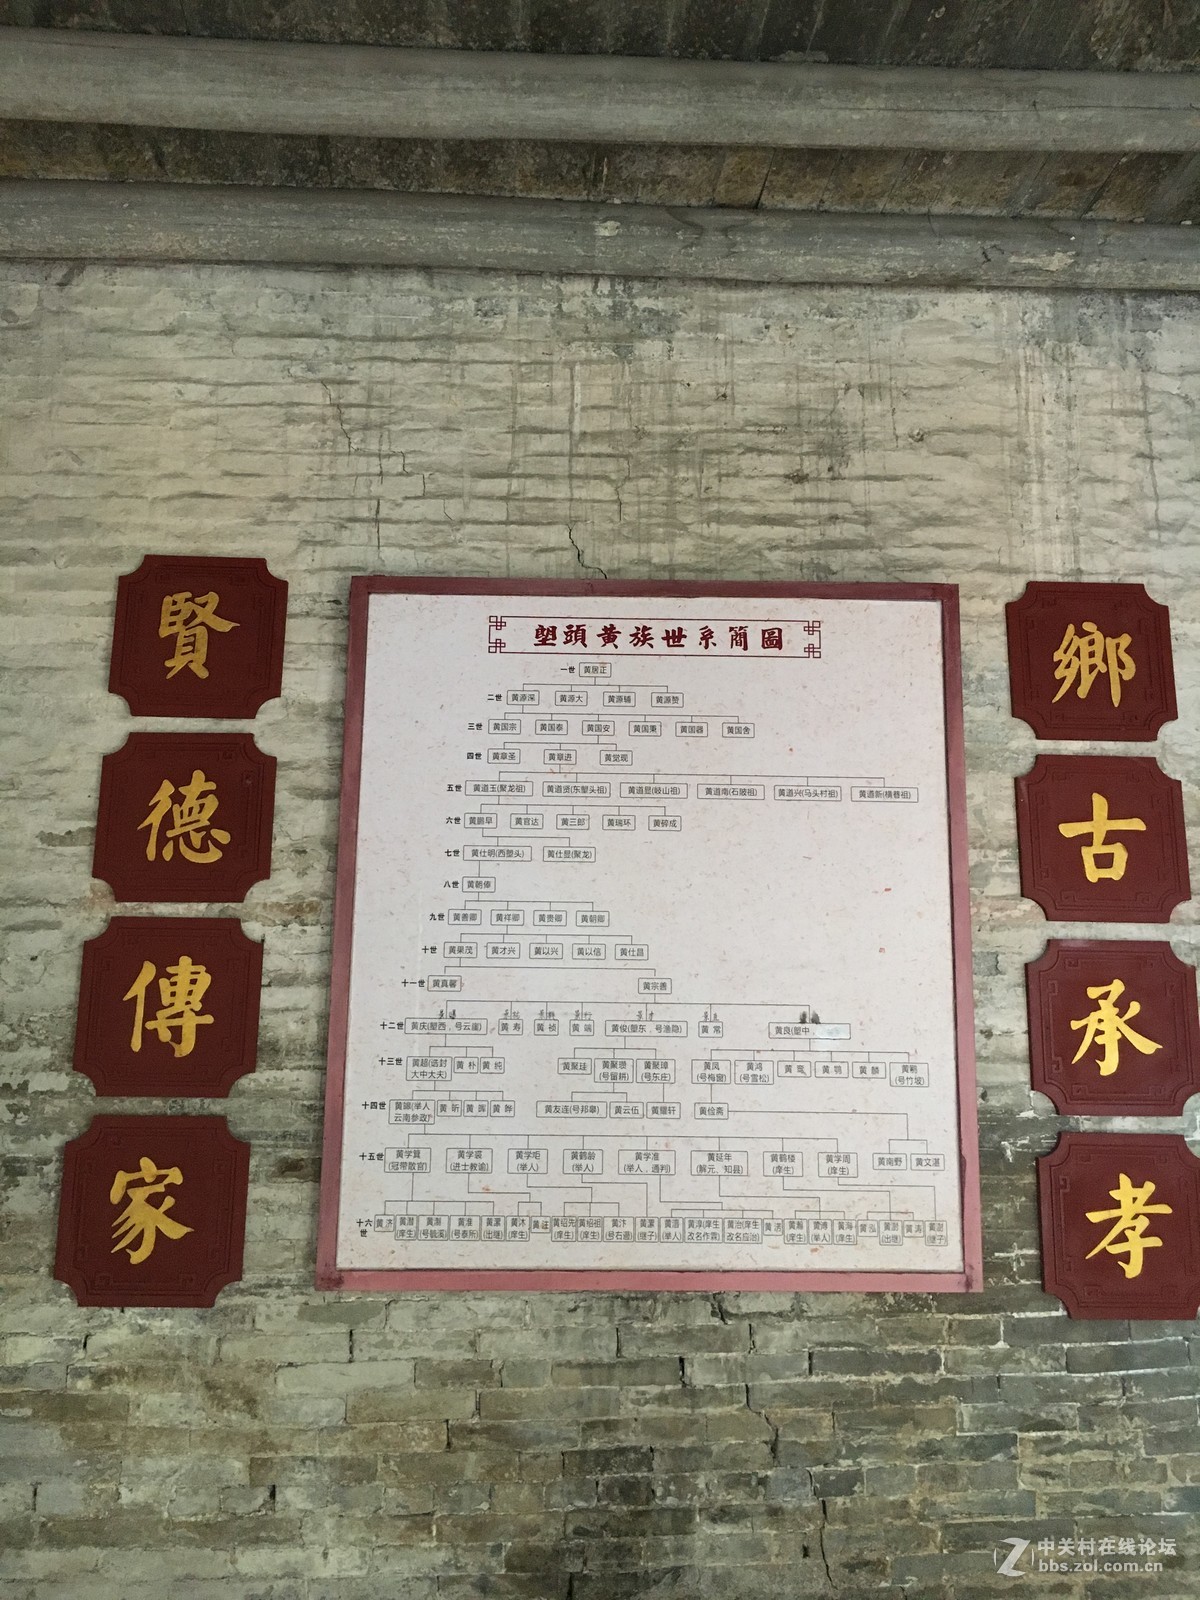 鄉古承孝
賢德傳家
塱頭黄族世系簡圖
一世 黄居正
二世 黄源深 黄源大 黄源辅 黄源赞
三世 黄国宗 黄国泰 黄国安 黄国秉 黄国器 黄国舍
四世 黄章圣 黄章进 黄觉观
五世 黄道玉(聚龙祖) 黄道贤(东塱头祖) 黄道显(岐山祖) 黄道南(石陂祖) 黄道兴(马头村祖) 黄道新(横巷祖)
六世 黄鹏早 黄官达 黄三郎 黄瑞环 黄碎成
七世 黄仕明(西塱头) 黄仕显(聚龙)
八世 黄朝俸
九世 黄善卿 黄祥卿 黄贵卿 黄朝卿
十世 黄果茂 黄才兴 黄以兴 黄以信 黄仕昌
十一世 黄真馨 黄宗善
十二世 黄庆(塱西，号云崖) 黄寿 黄祯 黄端 黄俊(塱东，号渔隐) 黄常 黄良(塱中，
十三世 黄超(诰封大中大夫) 黄朴 黄纯 黄聚珪 (号留耕) 黄聚璋(号东庄) 黄凤(号梅窗) 黄鸿(号雪松) 黄鸾 黄麟 (号竹坡)
十四世 黄皞(举人云南参政) 黄昕 黄晔 黄友连(号邦皋) 黄云伍 黄耀轩 黄俭斋
十五世 黄学箕(冠带散官) 黄学裘(进士教谕) 黄学矩(举人) 黄鹤龄(举人) 黄学准(举人，通判) 黄延年(解元、知县) 黄鹤楼(庠生) 黄学周(庠生) 黄南野 黄文湛
十六世 黄济 黄潜(庠生) (号毓溪) 黄淮(号泰所) (出继) 黄沐(庠生) 黄绍先(庠生) 黄绍祖(庠生) 黄汴(号右迴) (继子) (举人) 黄淳(庠生改名作霖) 黄治(庠生改名应治) 黄瀚(庠生) 黄溥(举人) 黄海(庠生) 黄泓 (出继) 黄涛 (继子)
中关村在线论坛
bbs.zol.com.cn